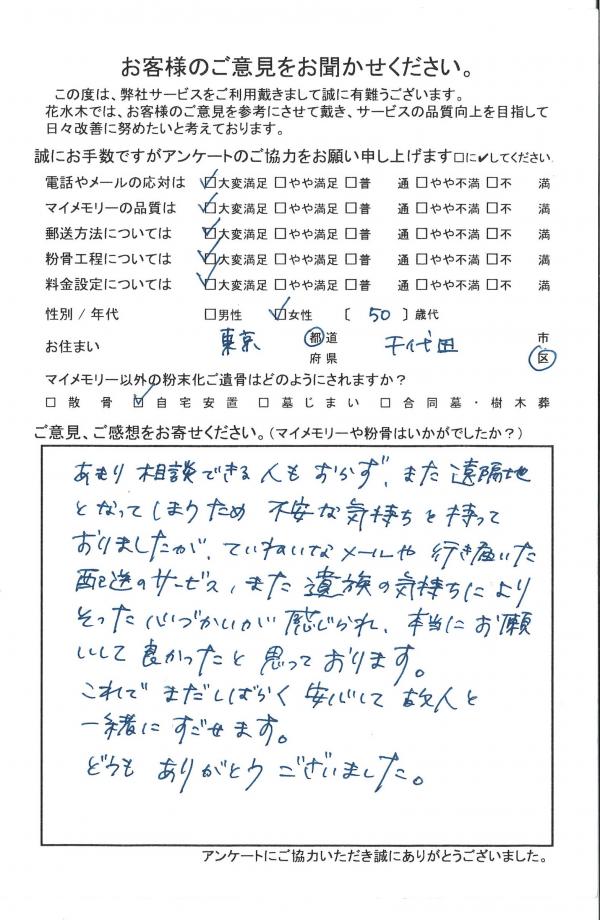 お客様のご意見をお聞かせください。
この度は、弊社サービスをご利用戴きまして誠に有難うございます。
花水木では、お客様のご意見を参考にさせて戴き、サービスの品質向上を目指して
日々改善に努めたいと考えております。
誠にお手数ですがアンケートのご協力をお願い申し上げます□に✔してください
電話やメールの応対は ☑大変満足 □やや満足 □普 通 □やや不満 □不 満
マイメモリーの品質は ☑大変満足 □やや満足 □普 通 □やや不満 □不 満
郵送方法については ☑大変満足 □やや満足 □普 通 □やや不満 □不 満
粉骨工程については ☑大変満足 □やや満足 □普 通 □やや不満 □不 満
料金設定については ☑大変満足 □やや満足 □普 通 □やや不満 □不 満
性別 / 年代 □男性 ☑女性 〔 50 〕歳代
お住まい 東京 都 道 府 県 千代田 市 区
マイメモリー以外の粉末化ご遺骨はどのようにされますか？
□ 散 骨 ☑ 自宅安置 □ 墓じまい □ 合同墓・樹木葬
ご意見、ご感想をお寄せください。(マイメモリーや粉骨はいかがでしたか？)
あまり相談できる人もおらず、また遠隔地
となってしまうため 不安な気持ちを持って
おりましたが、ていねいなメールや 行き届いた
配送のサービス、また遺族の気持ちにより
そった心づかいが 感じられ、本当にお願
いして良かったと思っております。
これで まだしばらく 安心して 故人と
一緒に すごせます。
どうも ありがとう ございました。
アンケートにご協力いただき誠にありがとうございました。